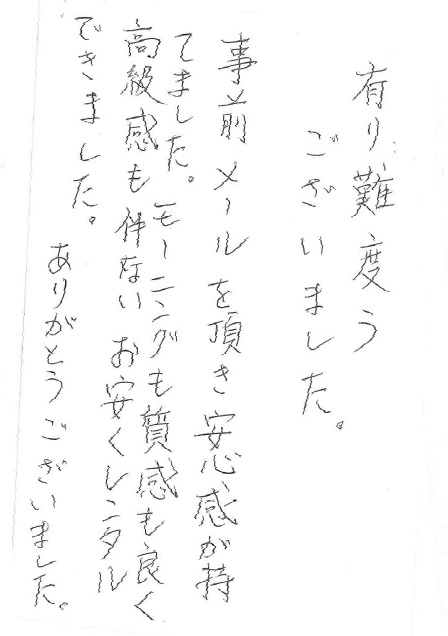 有り難度う
ございました。
事前メールを頂き安心感が持
てました。モーニングも質感も良く
高級感も伴ない お安くレンタル
できました。ありがとうございました。